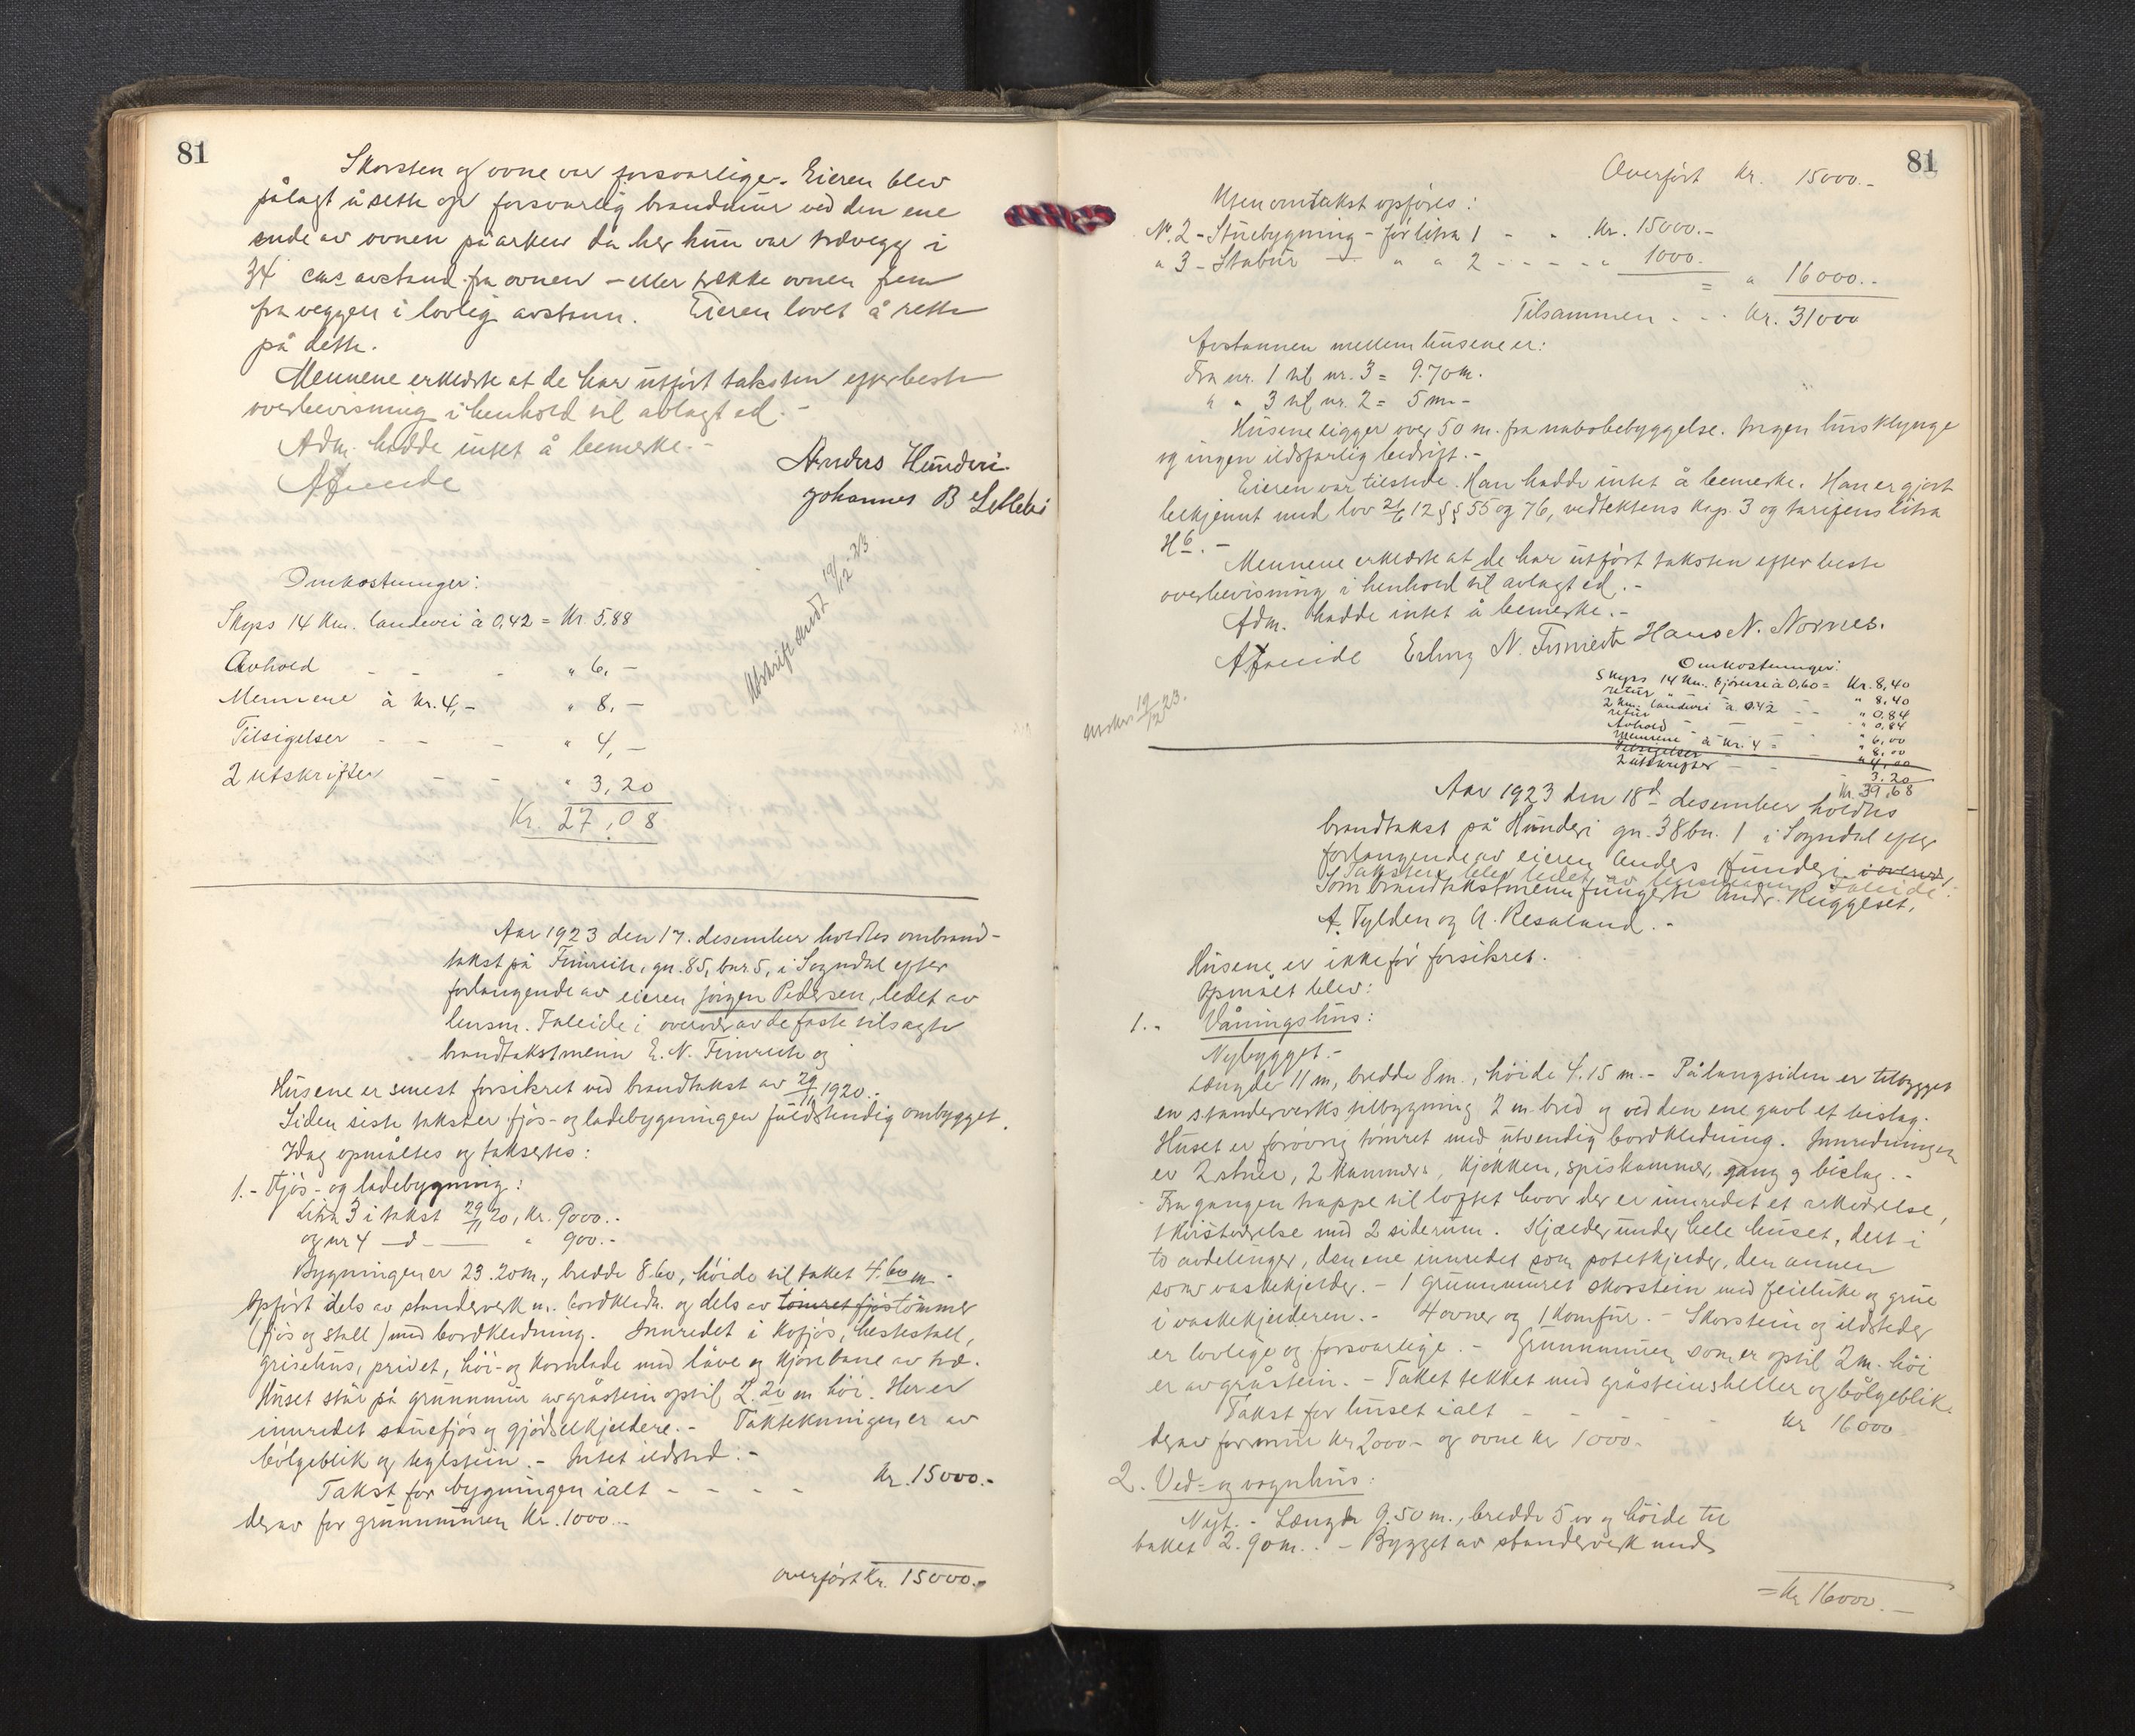 81
Skorsten og ovne var forsvarlige. Eieren blev
pålagt å sette op forsvarlig brandmur ved den ene
ende av ovnen på arken da her kun var trævegg i
34 cm avstand fra ovnen - eller trekke ovnen frem
fra veggen i lovlig avstann. Eieren lovet å rette
på dette.
Mennene erklærte at de har utført taksten efter beste
overbevisning i henhold til avlagt ed. -
Adm. hadde intet å bemerke. -
Anders Hunderi.
Johannes B
Omkostninger:
Skyss 14 Km. landevei à 0,42 = Kr. 5,88
Avhold - - - " 6, -
Mennene à Kr. 4,- " 8, -
Tilsigelser - - - " 4, -
2 utskrifter - - " 3,20
Kr. 27,08
Utskrift sendt 19/12 23
Aar 1923 den 17. desember holdtes ombrand-
takst på Fimreite, gn. 85, bnr. 5, i Sogndal efter
forlangende av eieren Jørgen Pedersen, ledet av
lensm. Faleide i overvær av de faste tilsagte
brandtakstmenn E. N. Fimreite og
Husene er senest forsikret ved brandtakst av 29/11 1920. -
Siden siste takst er fjøs- og ladebygningen fuldstendig ombygget.
Idag opmåltes og taksertes:
1. - Fjøs- og ladebygning:
Litra 3 i takst 29/11 20, Kr. 9000. -
og nr 4 - d - " 900. -
Bygningen er 23.20 m., bredde 8.60, høide til taket 4.60 m -
Opført dels av standerverk m. bordkledn. og dels av tømret fjøs tømmer
(fjøs og stall) med bordkledning. Innredet i kofjøs, hestestall,
grisehus, privet, høi- og kornlade med låve og kjørebane av træ.
Huset står på grunnmur av gråstein optil 2.20 m høi. Her er
innredet sauefjøs og gjødselkjeldere. - Taktekningen er av
bølgeblik og teglstein. - Intet ildsted. -
Takst for bygningen ialt - - - - Kr. 15000. -
derav for grunnmuren Kr. 1000. -
overført Kr. 15000. -
81
Overført Kr. 15000. -
Uten omtakst opføres:
Nr. 2 - Stuebygning - før litra 1 - - Kr. 15000. -
" 3 - Stabur - " " 2 - - - - " 1000.
= " 16000. -
Tilsammen - - - Kr. 31000
Avstannen mellem husene er:
Fra nr. 1 til nr. 3 = 9.70 m.
" " 3 til nr. 2 = 5 m -
Husene ligger over 50 m. fra nabobebyggelse. Ingen husklynge
og ingen ildsfarlig bedrift. -
Eieren var tilstede. Han hadde intet å bemerke. Han er gjort
bekjennt med lov 21/6 12 §§ 55 og 76, vedtektens kap. 3 og tarifens litra
H 6. -
Mennene erklærte at de har utført taksten efter beste
overbevisning i henhold til avlagt ed. -
Adm. hadde intet å bemerke. -
Erling N. Fimreite Hans N. Nornes.
Omkostninger:
Skyss 14 Km. kjørevei à 0,60 = Kr. 8,40
retur " 8,40
2 km. landevei à 0.42 - - " 0,84
retur - - " 0,84
Avhold - - - " 6,00
Mennene à Kr. 4 = " 8,00
Tilsigelser - - " 4,00
2 utskrifter - - 3.20
Kr. 39,68
Utskr. 19/12 23.
Aar 1923 den 18d desember holdtes
brandtakst på Hunderi gn. 38 bn. 1 i Sogndal efter
forlangende av eieren Anders Hunderi i overvær
Taksten blev ledet av lensmann Faleide.
Som brandtakstmenn fungerte Andr. Kuggeset,
A. Tylden og A. Resaland. -
Husene er ikke før forsikret.
Opmålt blev:
1. - Våningshus:
Nybygget. -
Længde 11 m, bredde 8 m., høide 4.15 m. - På langsiden er tilbygget
en standerverks tilbygning 2 m. bred og ved den ene gavl et bislag.
Huset er forøvrig tømret med utvendig bordkledning. Innredningen
er 2 stuer, 2 kammers, kjøkken, spiskammer, gang og bislag. -
Fra gangen trappe til loftet hvor der er innredet et arkeværelse,
1 kvistværelse med 2 siderum. Kjælder under hele huset, delt i
to avdelinger, den ene innredet som potetkjelder, den annen
som vaskekjelder. - 1 grunnmuret skorstein med feieluke og grue
i vaskekjelderen. - 4 ovner og 1 komfur. - Skorstein og ildsteder
er lovlige og forsvarlige. - Grunnmuren som er optil 2 m. høi
er av gråstein. - Taket tekket med gråsteinsheller og bølgeblik.
Takst for huset ialt - - - - - Kr 16000
derav for mur Kr 2000 - og ovne Kr 1000 -
2. Ved- og vognhus:
Nyt. - Længde 9.50 m., bredde 5 m og høide til
taket 2.90 m. - Bygget av standerverk med
= Kr 16000. -